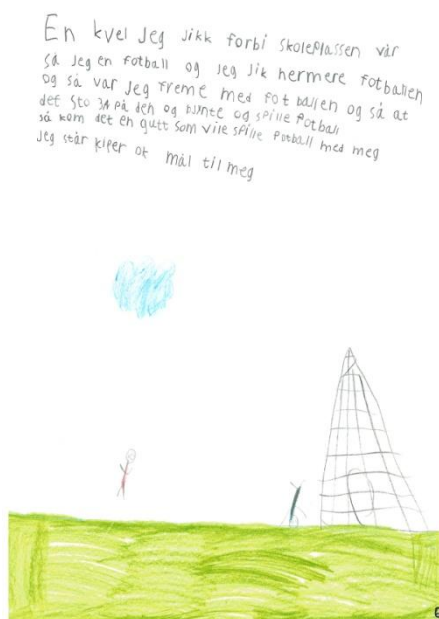 En kvel jeg jikk forbi skoleplassen vår
så jeg en fotball og jeg jik hermere fotballen
og så var jeg freme med fotballen og så at
det sto 3A på den og bynte og spille fotball
så kom det en gutt som vile spille fotball med meg
jeg står kiper ot mål til meg